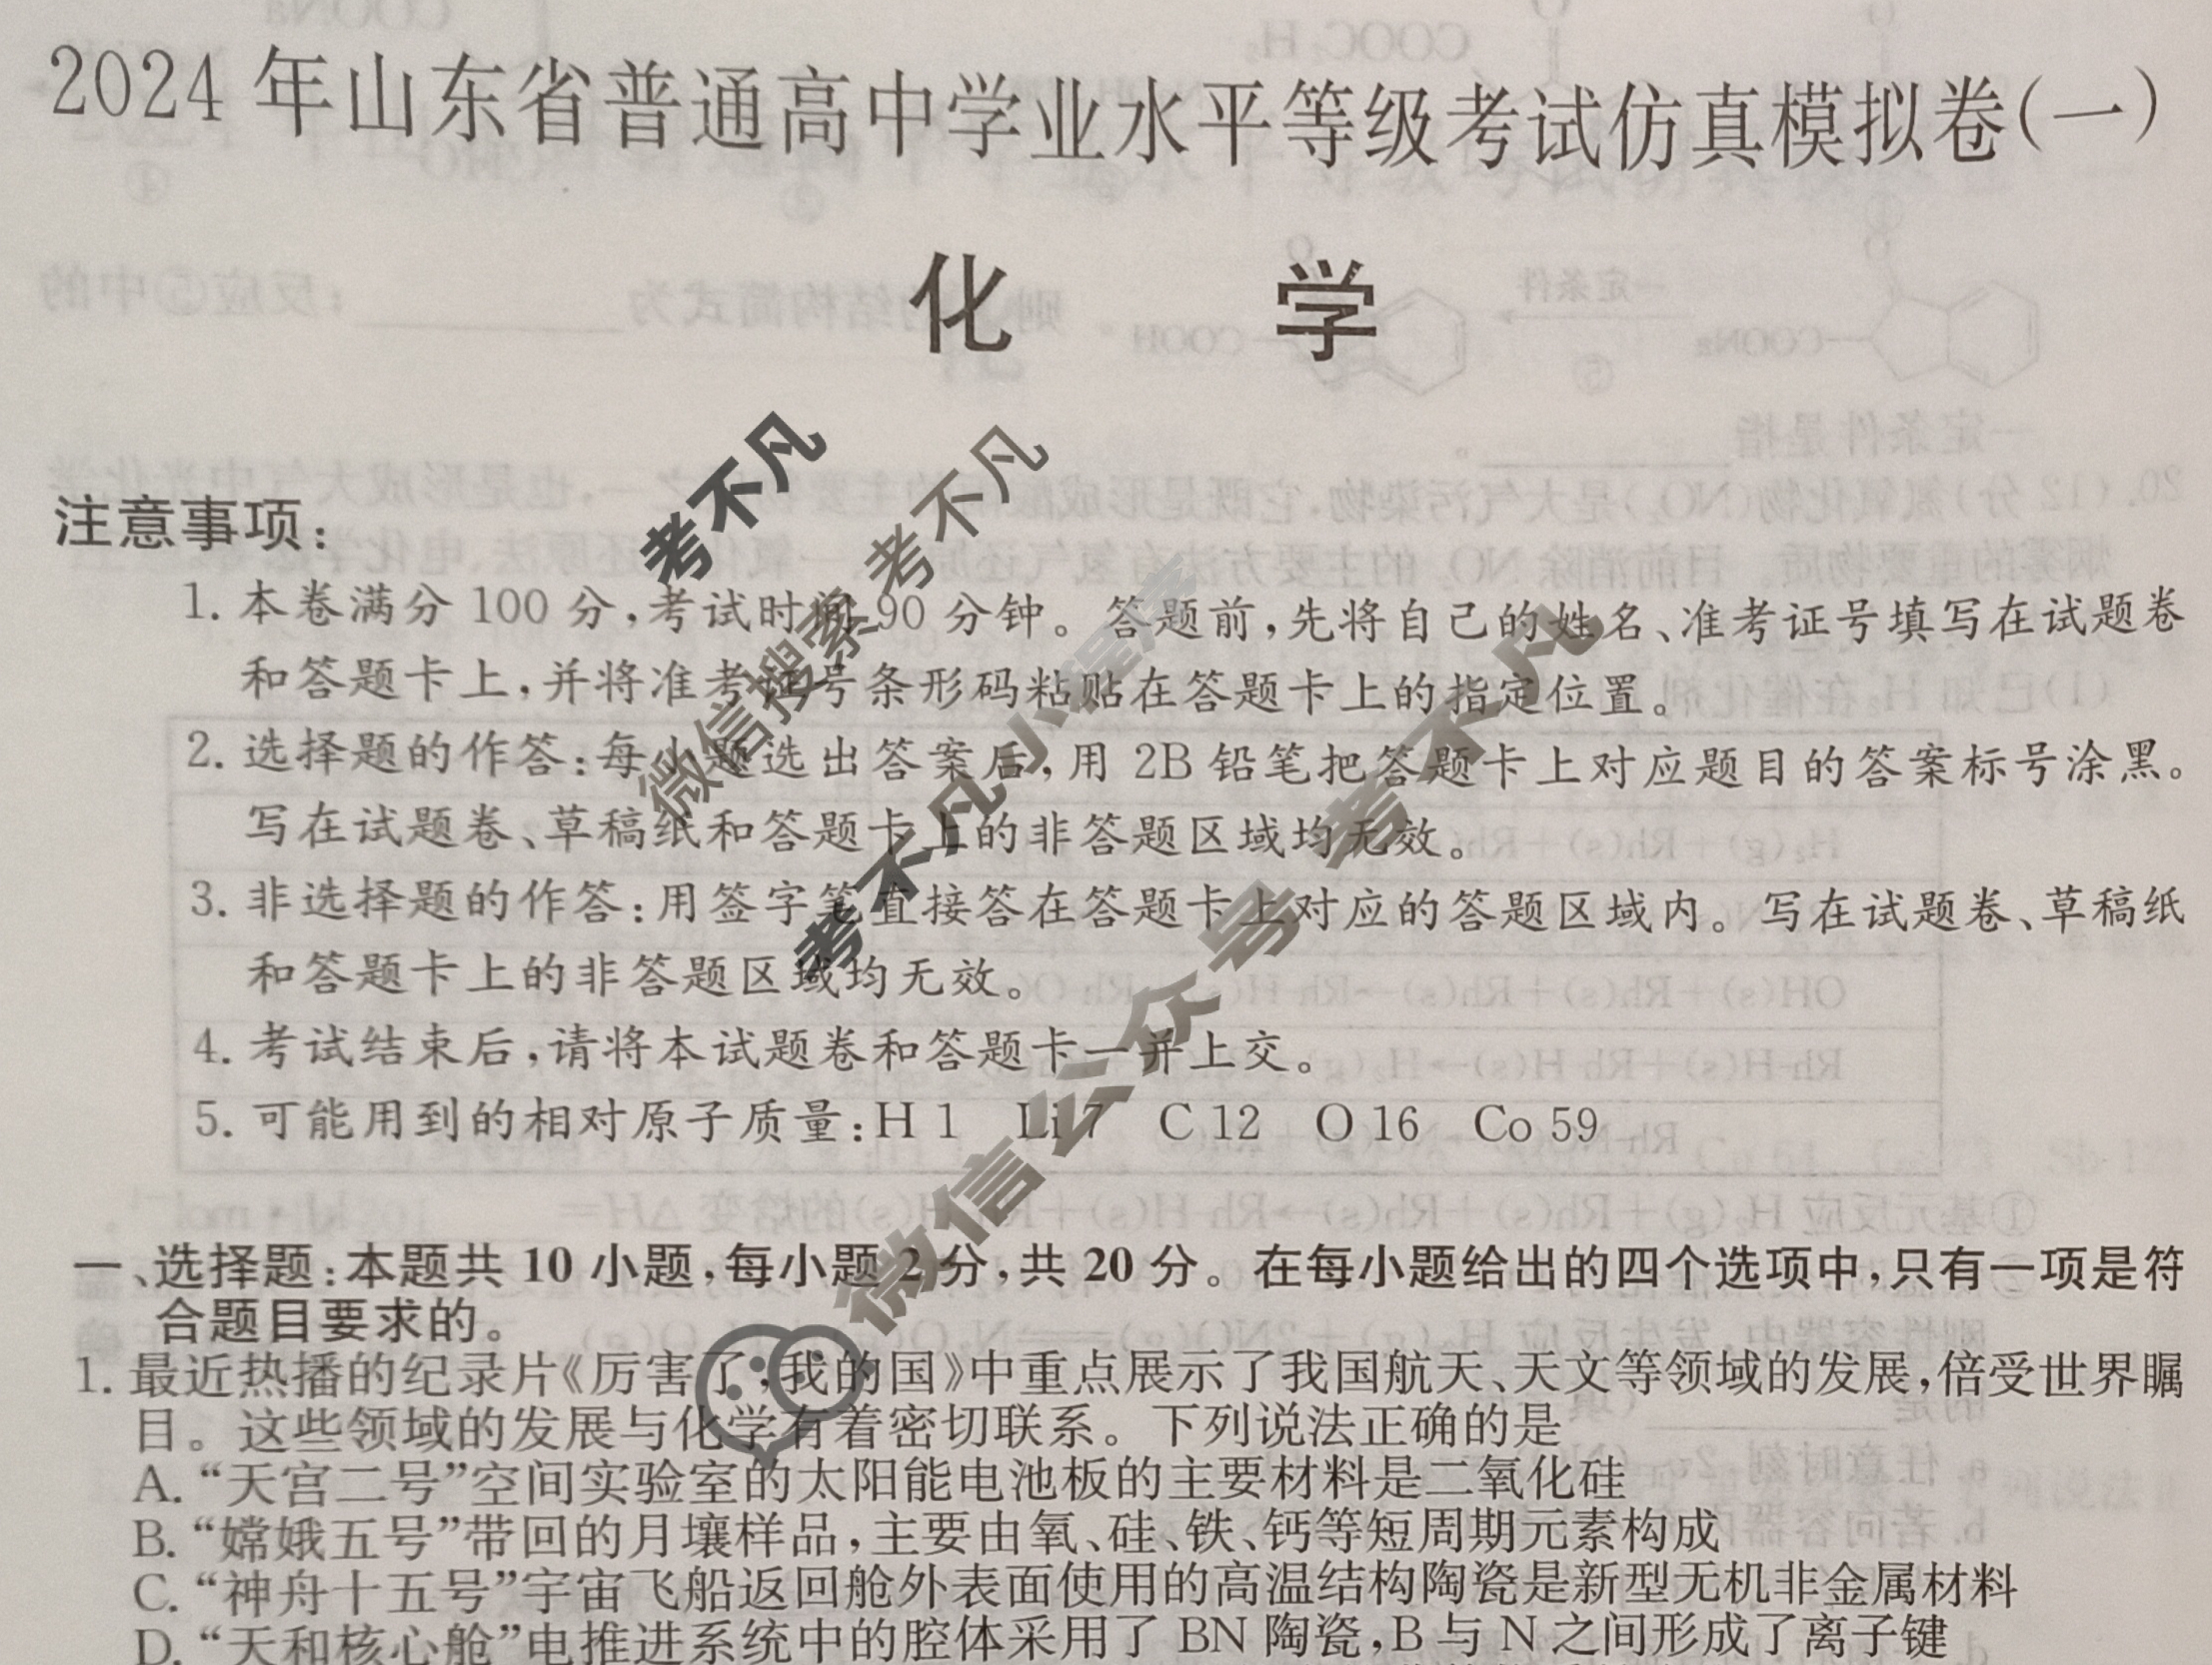 2024年山东省普通高中学业水平等级考试仿真模拟卷(一)
化 学
注意事项:
1. 本卷满分 100 分,考试时间 90 分钟。答题前,先将自己的姓名、准考证号填写在试题卷
和答题卡上,并将准考证号条形码粘贴在答题卡上的指定位置。
2. 选择题的作答:每小题选出答案后,用 2B 铅笔把答题卡上对应题目的答案标号涂黑。
写在试题卷、草稿纸和答题卡上的非答题区域均无效。
3. 非选择题的作答:用签字笔直接答在答题卡上对应的答题区域内。写在试题卷、草稿纸
和答题卡上的非答题区域均无效。
4. 考试结束后,请将本试题卷和答题卡一并上交。
5. 可能用到的相对原子质量:H 1 Li 7 C 12 O 16 Co 59
一、选择题:本题共 10 小题,每小题 2 分,共 20 分。在每小题给出的四个选项中,只有一项是符
合题目要求的。
1. 最近热播的纪录片《厉害了,我的国》中重点展示了我国航天、天文等领域的发展,倍受世界瞩
目。这些领域的发展与化学有着密切联系。下列说法正确的是
A. “天宫二号”空间实验室的太阳能电池板的主要材料是二氧化硅
B. “嫦娥五号”带回的月壤样品,主要由氧、硅、铁、钙等短周期元素构成
C. “神舟十五号”宇宙飞船返回舱外表面使用的高温结构陶瓷是新型无机非金属材料
D. “天和核心舱”电推进系统中的腔体采用了 BN 陶瓷,B 与 N 之间形成了离子键
考不凡
微信搜索 考不凡
考不凡小程序
微信公众号 考不凡